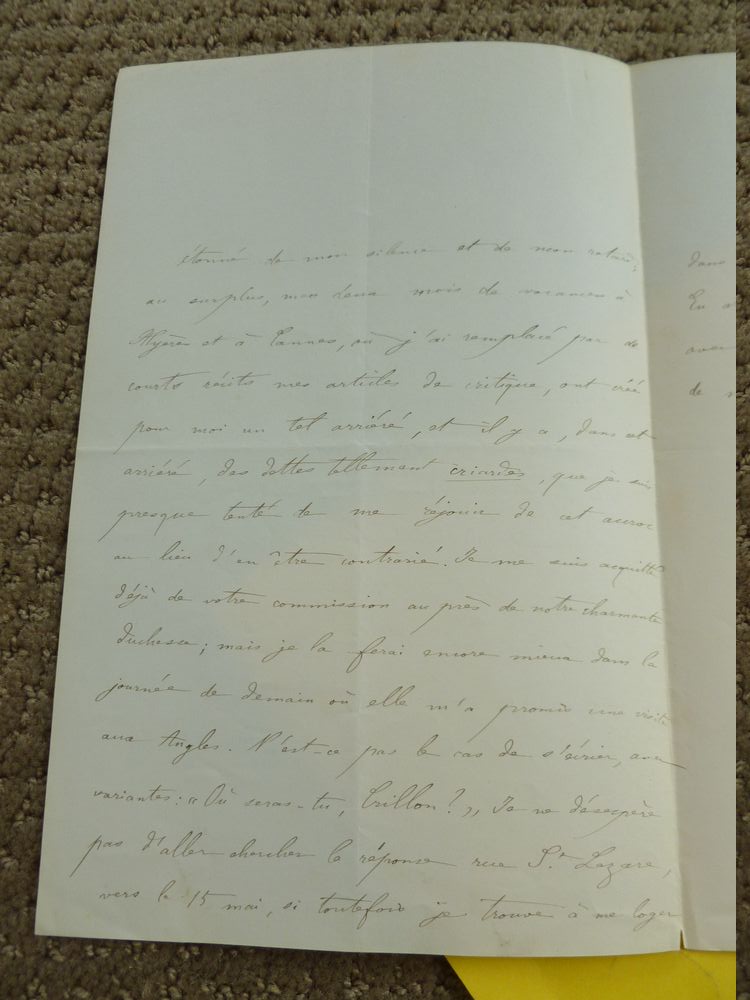 étonné de mon silence et de mon retard;
au surplus, mes deux mois de vacances à
Hyères et à Cannes, où j'ai remplacé par de
courts récits mes articles de critique, ont créé
pour moi un tel arriéré, et il y a, dans cet
arriéré, des dettes tellement criardes, que je suis
presque tenté de me réjouir de cet
au lieu d'en être contrarié. Je me suis acquitté
déjà de votre commission au près de notre charmante
duchesse; mais je la ferai encore mieux dans la
journée de demain où elle m'a promis une visite
aux Angles. N'est-ce pas le cas de s'écrier, avec
variantes: "Où seras-tu, Crillon?" Je ne désespère
pas d'aller chercher la réponse rue St. Lazare,
vers le 15 mai, si toutefois je trouve à me loger
dans
En
avec
de